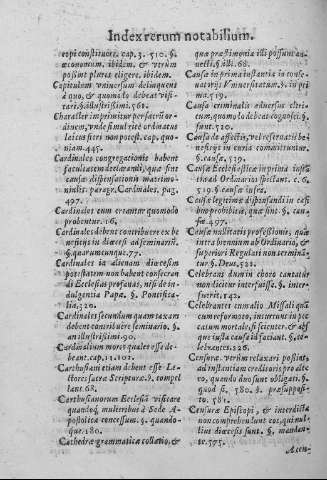 Index rerum notabilium.
copi constituere. cap. 3. 510. §.
œconomum. ibidem. & verùm
possint plures eligere. ibidem.
Capitulum vniuersum delinquens
à quo, & quomodo debeat visi-
tari. § illustrissimi. 561.
Character imprimitur per sacrũ or-
dinem, vnde simul rite ordinatus
laicus fieri non potest. cap. quo-
niam. 445.
Cardinales congregationis habent
facultatem declarandi, quæ sint
causæ dispensationis matrimo-
nialis. paragr. Cardinales. pag.
497.
Cardinales eum creantur quomodo
probentur. 16.
Cardinales debent contribuere ex be
neficijs in diœcesi ad seminariũ.
§. quarumcunque. 77.
Cardinales in alienam diœcesim
potestatem non habent consecran
di Ecclesias prophanas, nisi de in-
dulgentia Papæ. §. Pontifica-
lia. 320.
Cardinales secundum quam taxam
debent contribuere seminario. §.
an illustrissimi. 90.
Cardinalium mores quales esse de-
beant. cap. 11. 102.
Carthusiani etiam debent esse Le-
ctores sacræ Scripturæ. §. compel
lant. 68.
Carthusianorum Ecclesiã visitare
quandoq; mulieribus à Sede A-
postolica concessum. §. quando-
que. 180.
Cathedræ grammaticæ collatio, &
quæ præstimonia illi possunt an-
necti. § illi. 68.
Causæ in prima instantia in conser-
uatorijs Vniuersitatum. §. in pri
ma. 519.
Causa criminalis aduersus cleri-
cum, quomodo debeat cognosci. §.
sunt. 520.
Causa de assistis, vel reseruatis be
neficijs in curia committuntur.
§. causæ. 519.
Causæ Ecclesiasticæ in prima insta
tia ad Ordinarios spectant. c. 6.
519. § causæ infra.
Causæ legitimæ dispensandi in casi
bus prohibitis, quæ sint. §. cau-
sis. 497.
Causæ nullitatis professionis, quæ
intra biennium ab Ordinario, &
Superiori Regulari non terminã-
tur. §. Deus. 521.
Celebrans dumin choro cantatur
non dicitur interfuisse. §. inter-
fuerit. 142.
Celebrantes cum alio Missali quã
cum reformato, incurrunt in pec
catum mortale, si scienter, & abs
que iusta causa id faciant. §. ce-
lebrantes. 326.
Censuræ verùm relaxari possint,
ad instantiam creditoris pro alte
ro, quando duo sunt obligati. §.
quod si. 580. §. præsupposi-
to. 581.
Censuræ Episcopi, & interdicta
non comprehendunt eos, qui nul-
lius diœcesis sunt. §. mandan-
te. 575.
Acen-